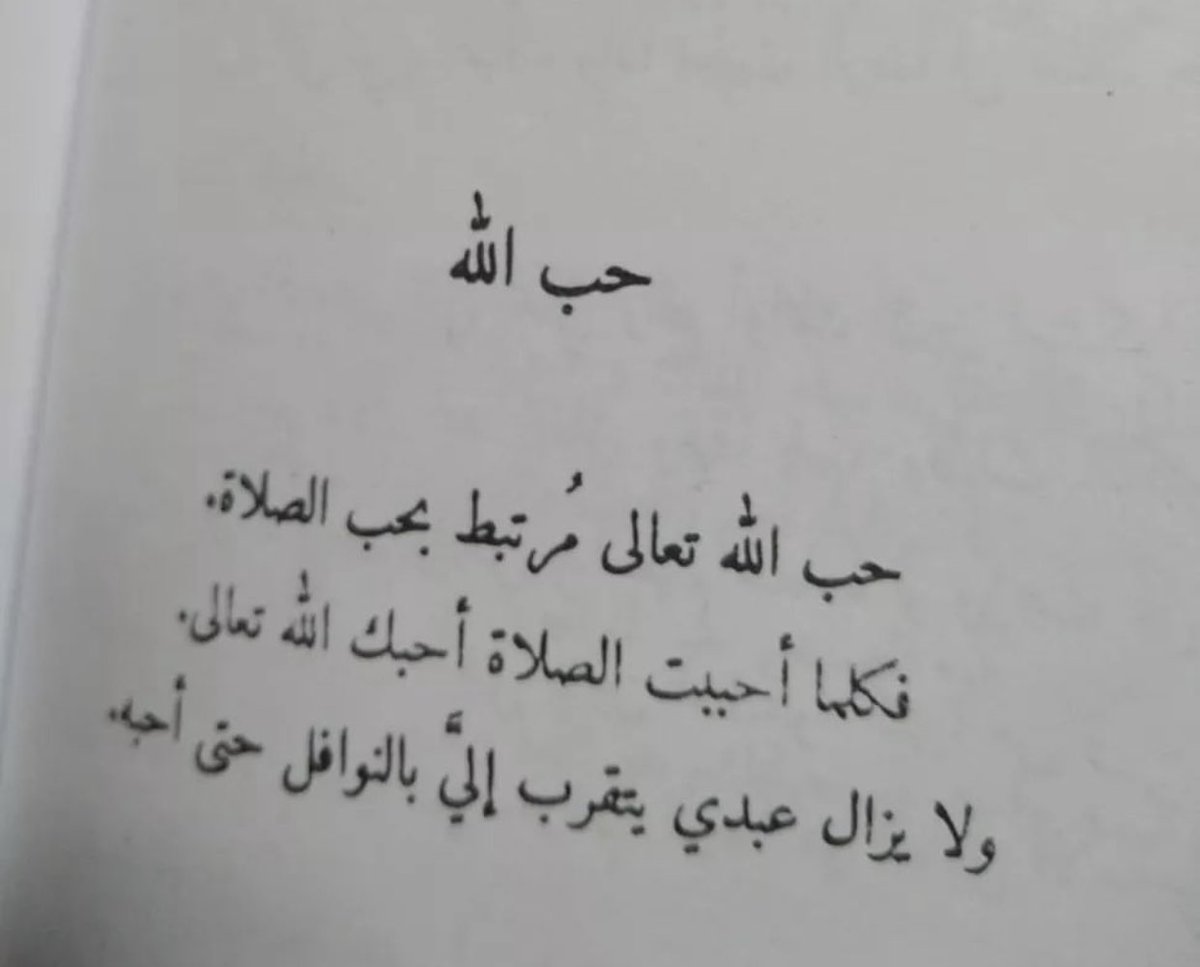 حب الله
حب الله تعالى مُرتبط بحب الصلاة.
فكلما أحببت الصلاة أحبك الله تعالى.
ولا يزال عبدي يتقرب إليَّ بالنوافل حتى أحبه.